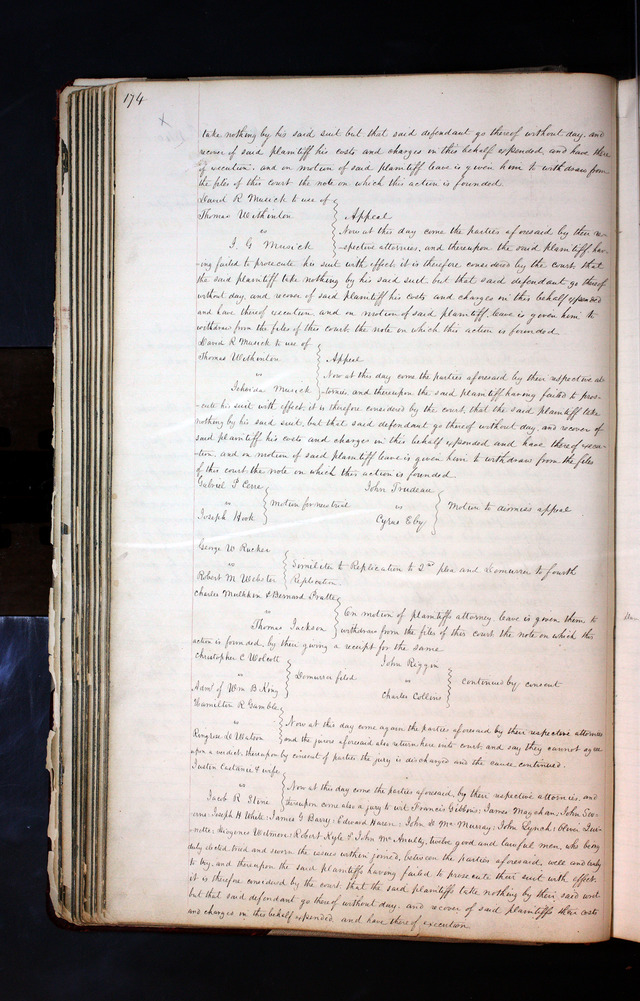 174
X
take nothing by his said suit but that said defendant go thereof without day, and
recover of said plaintiff his costs and charges in this behalf expended and have there
of execution, and on motion of said plaintiff leave is given him to withdraw from
the files of this court the note on which this action is founded
David R Musick to use of
Thomas Withinton } Appeal
vs } Now at this day come the parties aforesaid by their re-
J. G Musick } -spective attornies, and thereupon the said plaintiff hav-
-ing failed to prosecute his suit with effect it is therefore considered by the court that
the said plaintiff take nothing by his said suit but that said defendant go thereof
without day, and recover of said plaintiff his costs and charges in this behalf expended
and have thereof execution and on motion of said plaintiff leave is given him to
withdraw from the files of this court the note on which this action is founded
David R Musick to use of
Thomas Withinton } Appeal
vs } Now at this day come the parties aforesaid by their respective at-
Musick } -tornies, and thereupon the said plaintiff having failed to pros-
-cute his suit with effect it is therefore considered by the court, that the said plaintiff take
nothing by his said suit, but that said defendant go thereof without day, and recover of
said plaintiff his costs and charges in this behalf expended and have thereof execu-
tion, and on motion of said plaintiff leave is given him to withdraw from the files
of this court the note on which this action is founded
Gabriel P Cerre
vs } Motion for new trial
Joseph Hook
John Trudeau
vs } Motion to dismiss appeal
Cyrus Eby
George W Rucker
vs } Similiter to Replication to 2nd plea and Demurrer to fourth
Robert M Webster } Replication
Charles Mulliken & Bernard Pratte
vs } On motion of plaintiffs attorney leave is given them to
Thomas Jackson } withdraw from the files of this court the note on which this
action is founded, by their giving a receipt for the same
Christopher C Wolcott
vs } Demurrer filed
Adm of Wm B King
John Riggin
vs } continued by consent
Charles Collins
Hamilton R Gamble
vs } Now at this day come again the parties aforesaid by their respective attornies
Ringrose D Watson } and the jurors aforesaid also return here into court and say they cannot agree
upon a verdict, thereupon by consent of parties the jury is discharged and the cause continued.
Justin Castanie & wife
vs } Now at this day come the parties aforesaid, by their respective attornies, and
Jacob R Stine } thereupon come also a jury to wit Francis Gibbons; James Mageham; John
Joseph H White; James G Barry; Edward Haren; John D McMurray; John Lynch; Oliver
Diogenes Wetmore; Robert Kyle & John McAnulty, twelve good and lawful men, who being
duly elected, tried and sworn the issues within joined, between the parties aforesaid, well and truly
to try, and thereupon the said plaintiffs having failed to prosecute their suit with effect
it is therefore considered by the court that the said plaintiffs take nothing by their said writ
but that said defendant go thereof without day, and recover of said plaintiffs their costs
and charges in this behalf expended and have thereof execution